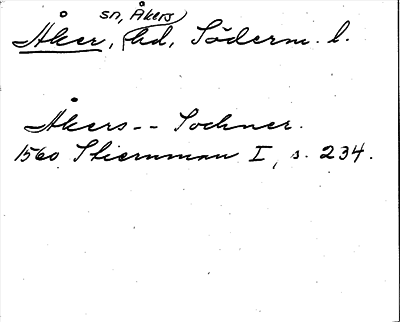 sn, Åkers
Åker, hd, Söderm. l.
Åkers -- Sochner.
1560 Stiernman I, s. 234.